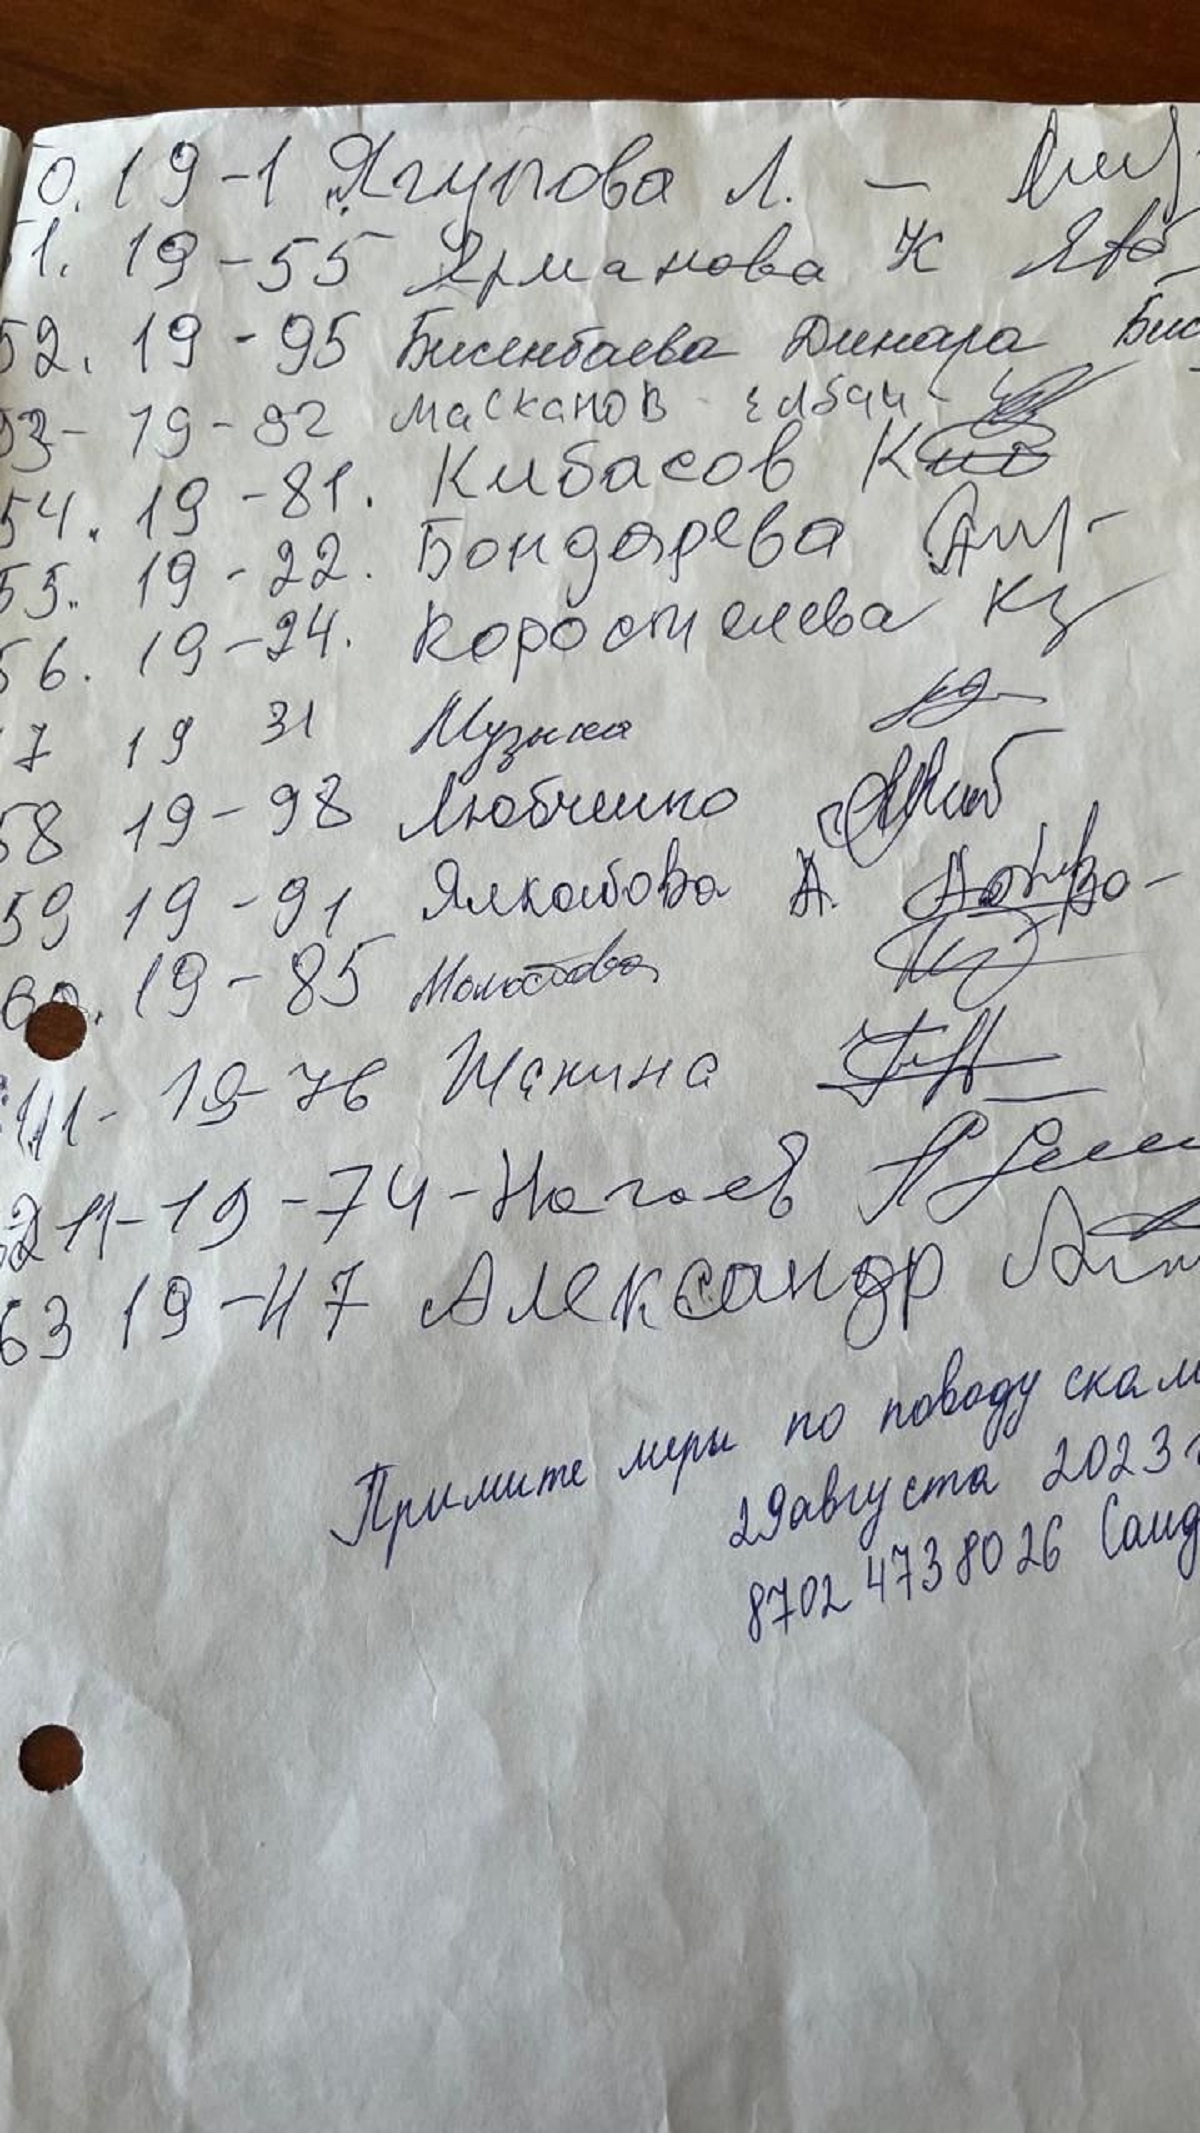 0. 19-1 Ягупова Л. —
1. 19-55 Ярманова К
52. 19-95 Бисенбаева Динара Бис
53- 19-82 Масканов елбай-
54. 19-81. Кибасов
55. 19-22. Бондарева
56. 19-24. Коростелева
7 19 31 Музыка
58 19-98 Любченко
59 19-91 Ялкабова А.
60. 19-85
19-76 Щанина
19-74-Нагаев
63 19-47 Александр
Примите меры по поводу скам
29 августа 2023 г
8702 473 80 26 Саид